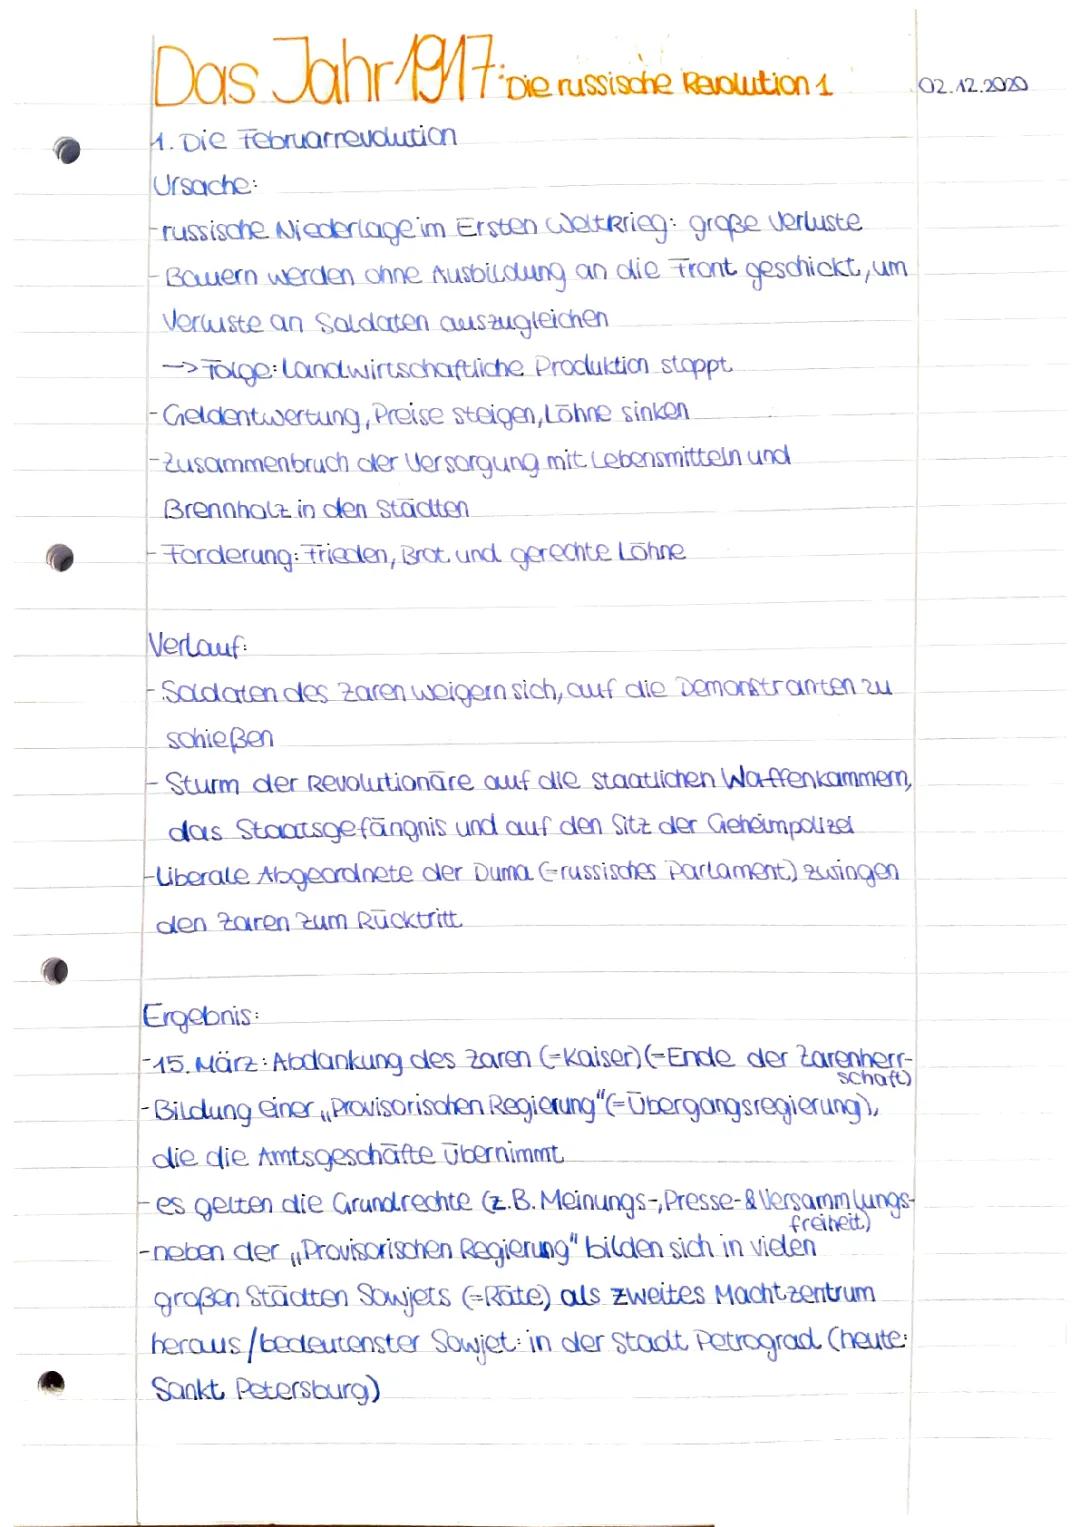 Das Jahr 1917: Die russische Revolution 1
02.12.2020
1. Die Februarrevolution
Ursache:
- russische Niederlage im Ersten Weltkrieg: große Verluste
- Bauern werden ohne Ausbildung an die Front geschickt, um
Verluste an Soldaten auszugleichen
-> Folge: Landwirtschaftliche Produktion stoppt
- Geldentwertung, Preise steigen, Löhne sinken
- Zusammenbruch der Versorgung mit Lebensmitteln und
Brennholz in den Städten
- Forderung: Frieden, Brot und gerechte Löhne
Verlauf:
- Soldaten des Zaren weigern sich, auf die Demonstranten zu
schießen
- Sturm der Revolutionäre auf die staatlichen Waffenkammern,
das Staatsgefängnis und auf den Sitz der Geheimpolizei
- Liberale Abgeordnete der Duma (=russisches Parlament) zwingen
den Zaren zum Rücktritt
Ergebnis:
- 15. März: Abdankung des Zaren (=Kaiser) (=Ende der Zarenherr-
schaft)
- Bildung einer „Provisorischen Regierung" (=Übergangsregierung),
die die Amtsgeschäfte übernimmt
- es gelten die Grundrechte (z.B. Meinungs-, Presse- & Versammlungs-
freiheit)
- neben der „Provisorischen Regierung" bilden sich in vielen
großen Städten Sowjets (=Räte) als zweites Machtzentrum
heraus/bedeutenster Sowjet: in der Stadt Petrograd (heute:
Sankt Petersburg)